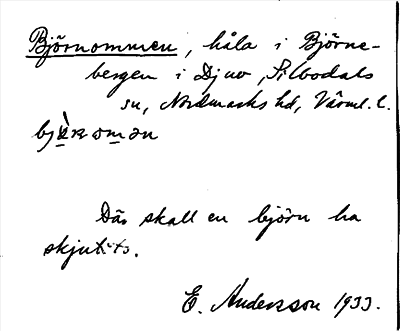 Björnommen, håla i Björne-
bergen i Djuv, Silbodals
sn, Nordmarks hd, Värml. l.
Där skall en björn ha
skjutits.
E. Andersson 1933.